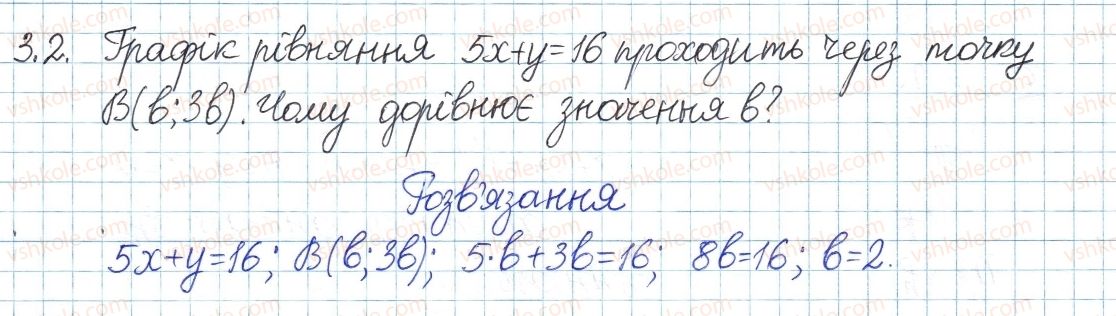 3.2. Графік рівняння 5x+y=16 проходить через точку
B(b; 3b). Чому дорівнює значення b?
Розв'язання
5x+y=16; B(b; 3b); 5·b+3b=16; 8b=16; b=2.